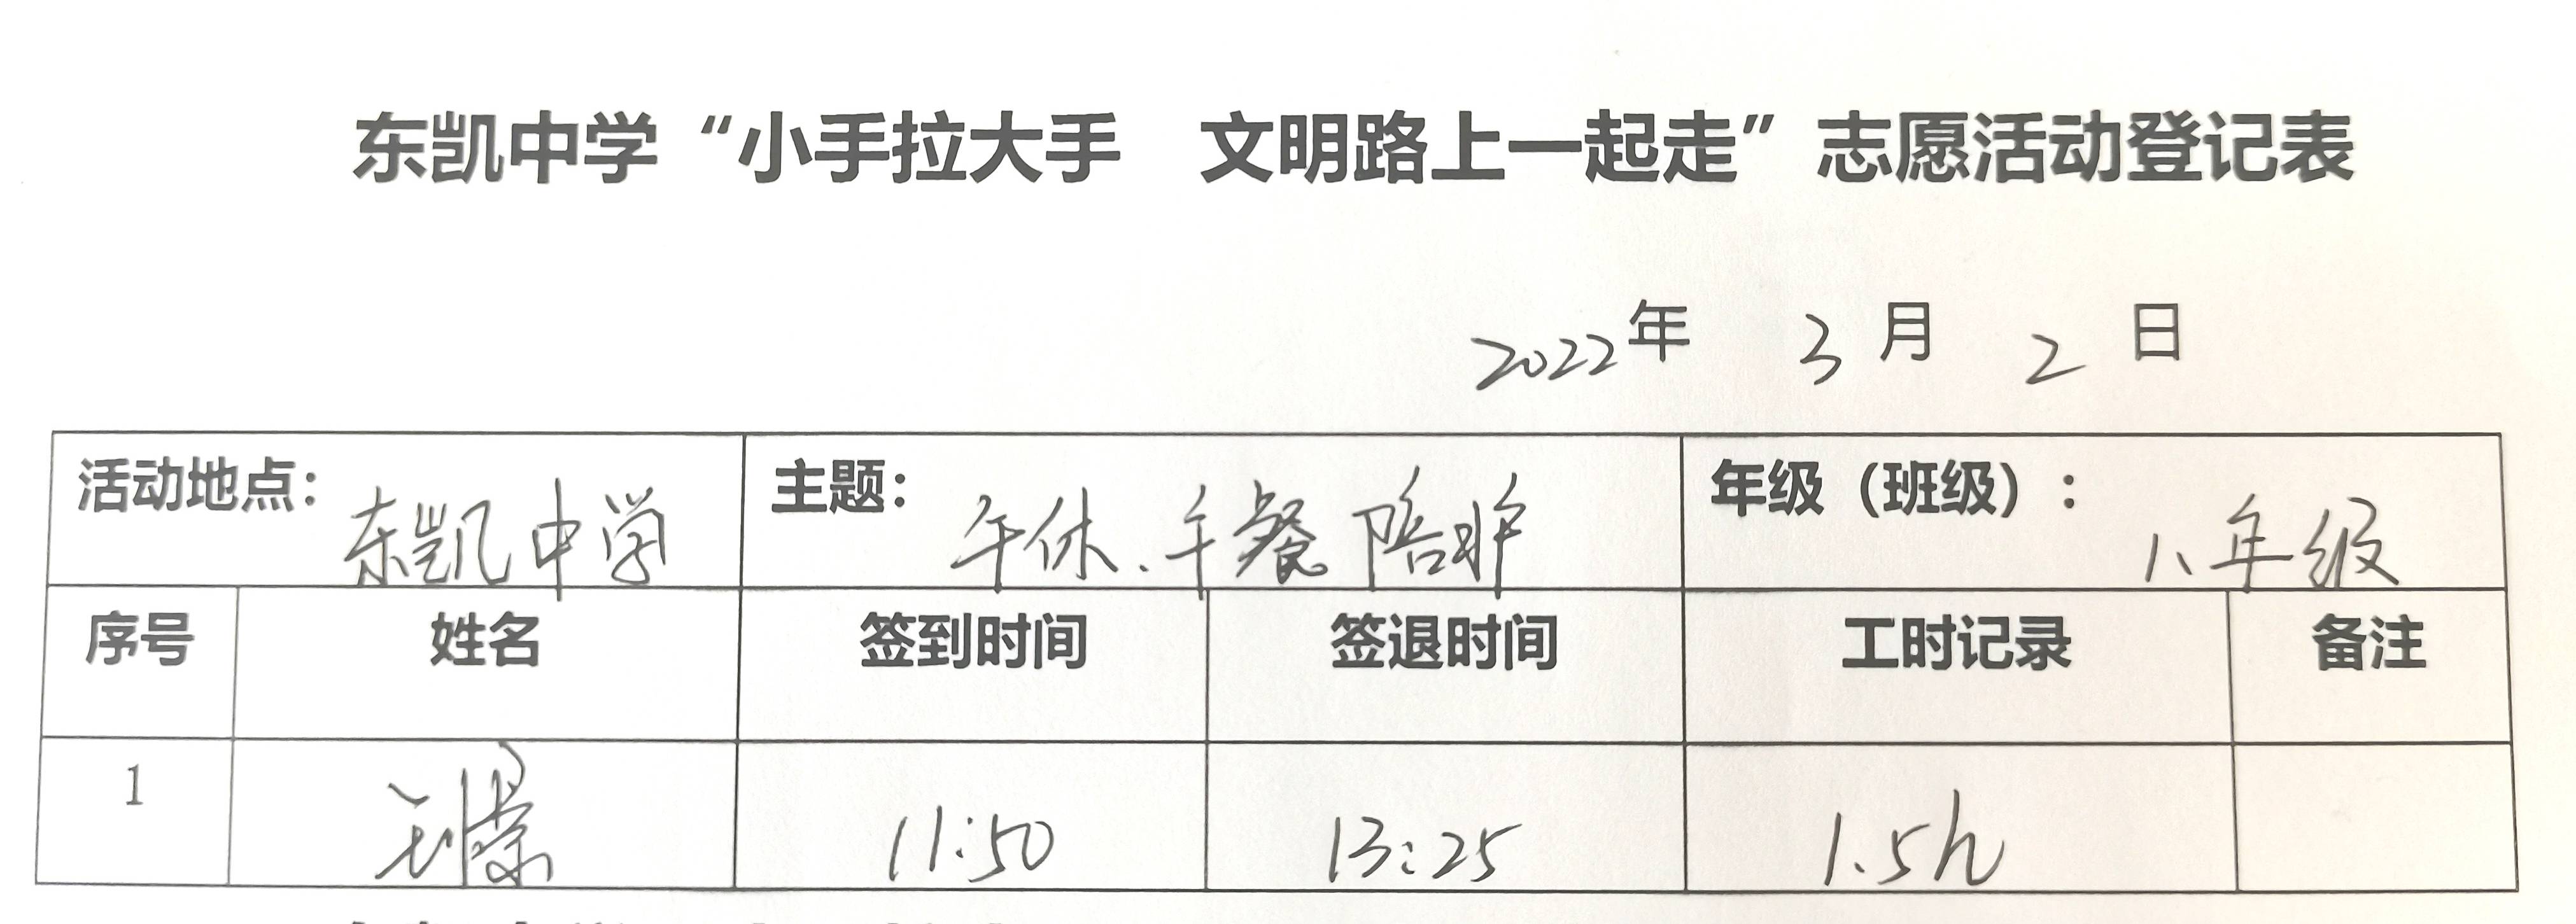 东凯中学“小手拉大手 文明路上一起走”志愿活动登记表
2022年 3月 2日
活动地点：东凯中学 主题：午休、午餐陪护 年级（班级）：八年级
序号 姓名 签到时间 签退时间 工时记录 备注
1 11:50 13:25 1.5h